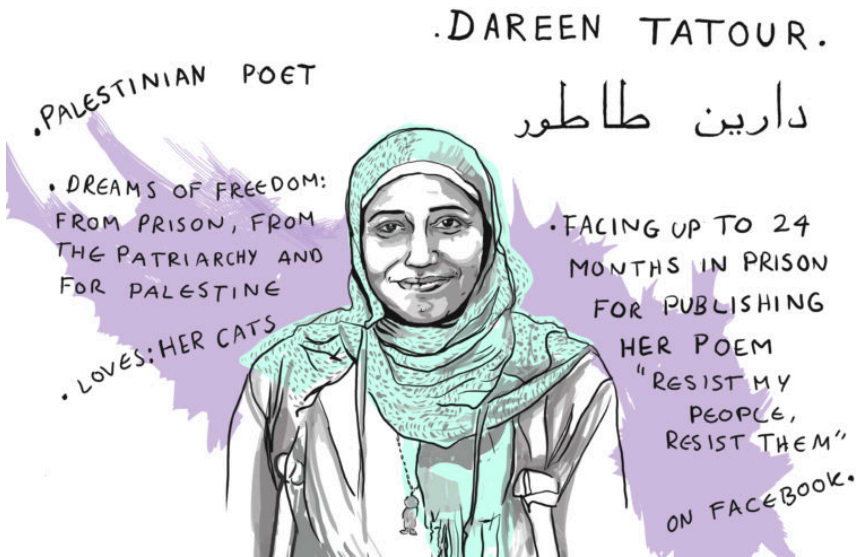 .DAREEN TATOUR.
دارين طاطور
.PALESTINIAN POET
. DREAMS OF FREEDOM:
FROM PRISON, FROM
THE PATRIARCHY AND
FOR PALESTINE
. LOVES: HER CATS
.FACING UP TO 24
MONTHS IN PRISON
FOR PUBLISHING
HER POEM
"RESIST MY
PEOPLE,
RESIST THEM"
ON FACEBOOK.